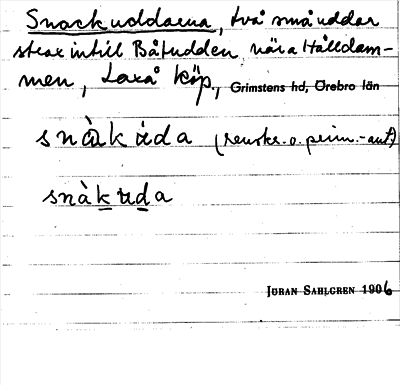 Snackuddarna, två små uddar
strax intill Båtudden nära Hålldam-
men, Laxå köp., Grimstens hd, Örebro län
snàkuda (renskr. o. prim.-ant)
snàkuda
JÖRAN SAHLGREN 1906